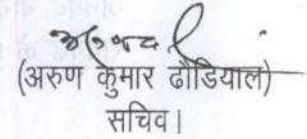 (अरुण कुमार ढौंडियाल)
सचिव।